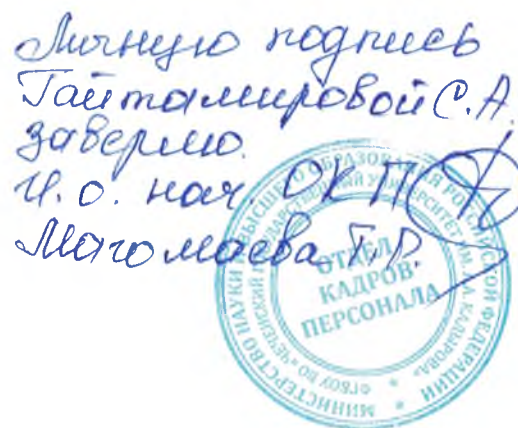 Личную подпись
Гайтамировой С.А.
заверяю.
И.о. нач. ОКП
Магомаева Т.Р.
МИНИСТЕРСТВО НАУКИ И ВЫСШЕГО ОБРАЗОВАНИЯ РОССИЙСКОЙ ФЕДЕРАЦИИ
ФГБОУ ВО «ЧЕЧЕНСКИЙ ГОСУДАРСТВЕННЫЙ УНИВЕРСИТЕТ ИМ. А.А. КАДЫРОВА»
ОТДЕЛ
КАДРОВ
ПЕРСОНАЛА